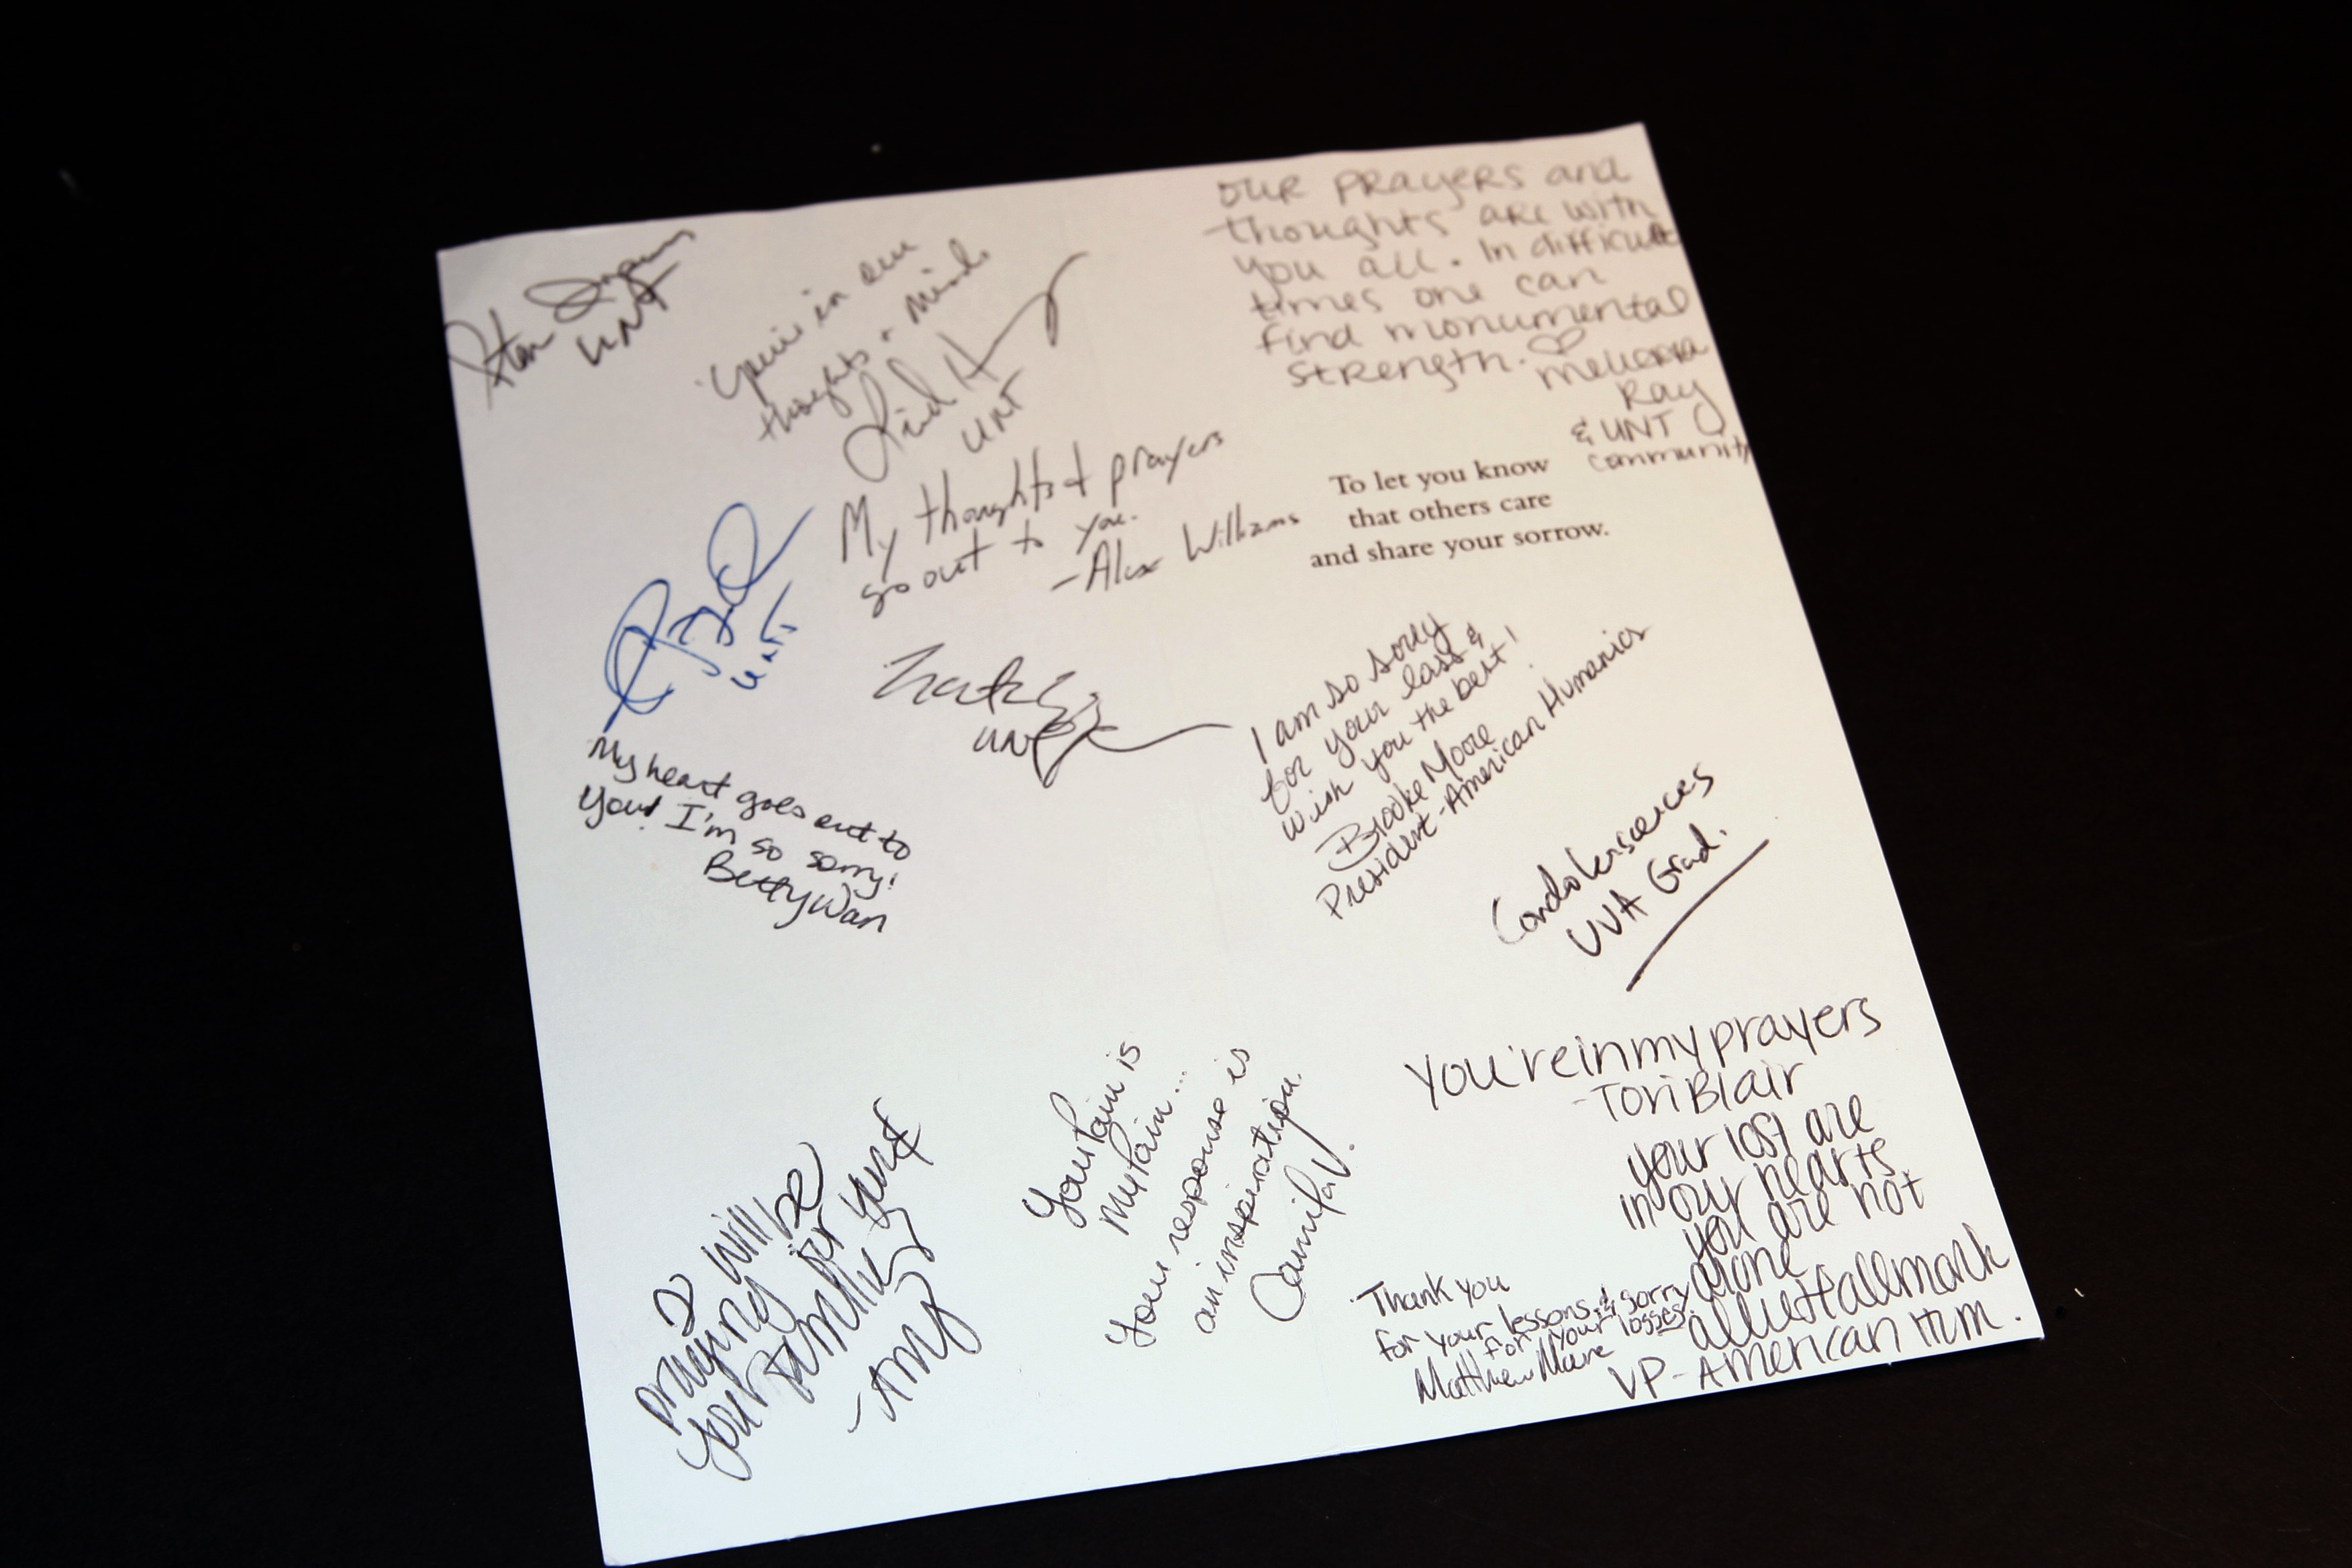 Stan
UNT
You're in our
thoughts + minds
UNT
OUR PRAYERS and
thoughts are with
you all. In difficult
times one can
find monumental
strength. ♡
Melissa
Ray
& UNT
community
My thoughts & prayers
go out to you.
-Alex Williams
To let you know
that others care
and share your sorrow.
UNT
UNT
My heart goes out to
you! I'm so sorry!
Betty Wan
I am so sorry
for your loss &
wish you the best!
Brooke Moore
President-American Humanics
Condolensceces
UVA Grad.
You're in my prayers
-Tori Blair
your lost are
in our hearts
you are not
alone
Hallmark
VP-American Hum.
Thank you
for your lessons & sorry
for your losses.
Matthew Moore
Your pain is
my pain...
Your response is
an inspiration.
Camila V.
I will be
praying for you &
your families
-Amy